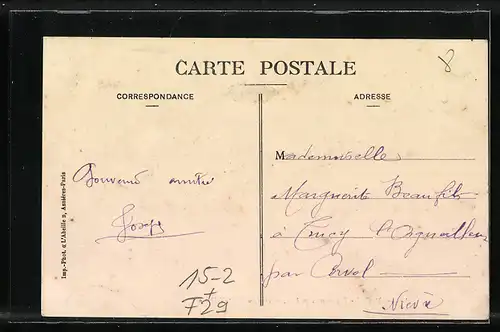 8
CARTE POSTALE
CORRESPONDANCE
ADRESSE
Imp.-Phot. « L'Abeille », Asnières-Paris
Souvenir amitié
Joseph
Mademoiselle
Marguerite Beaufils
à Crucy l'Aiguillon
par
Nièvre
15-2
+
F29